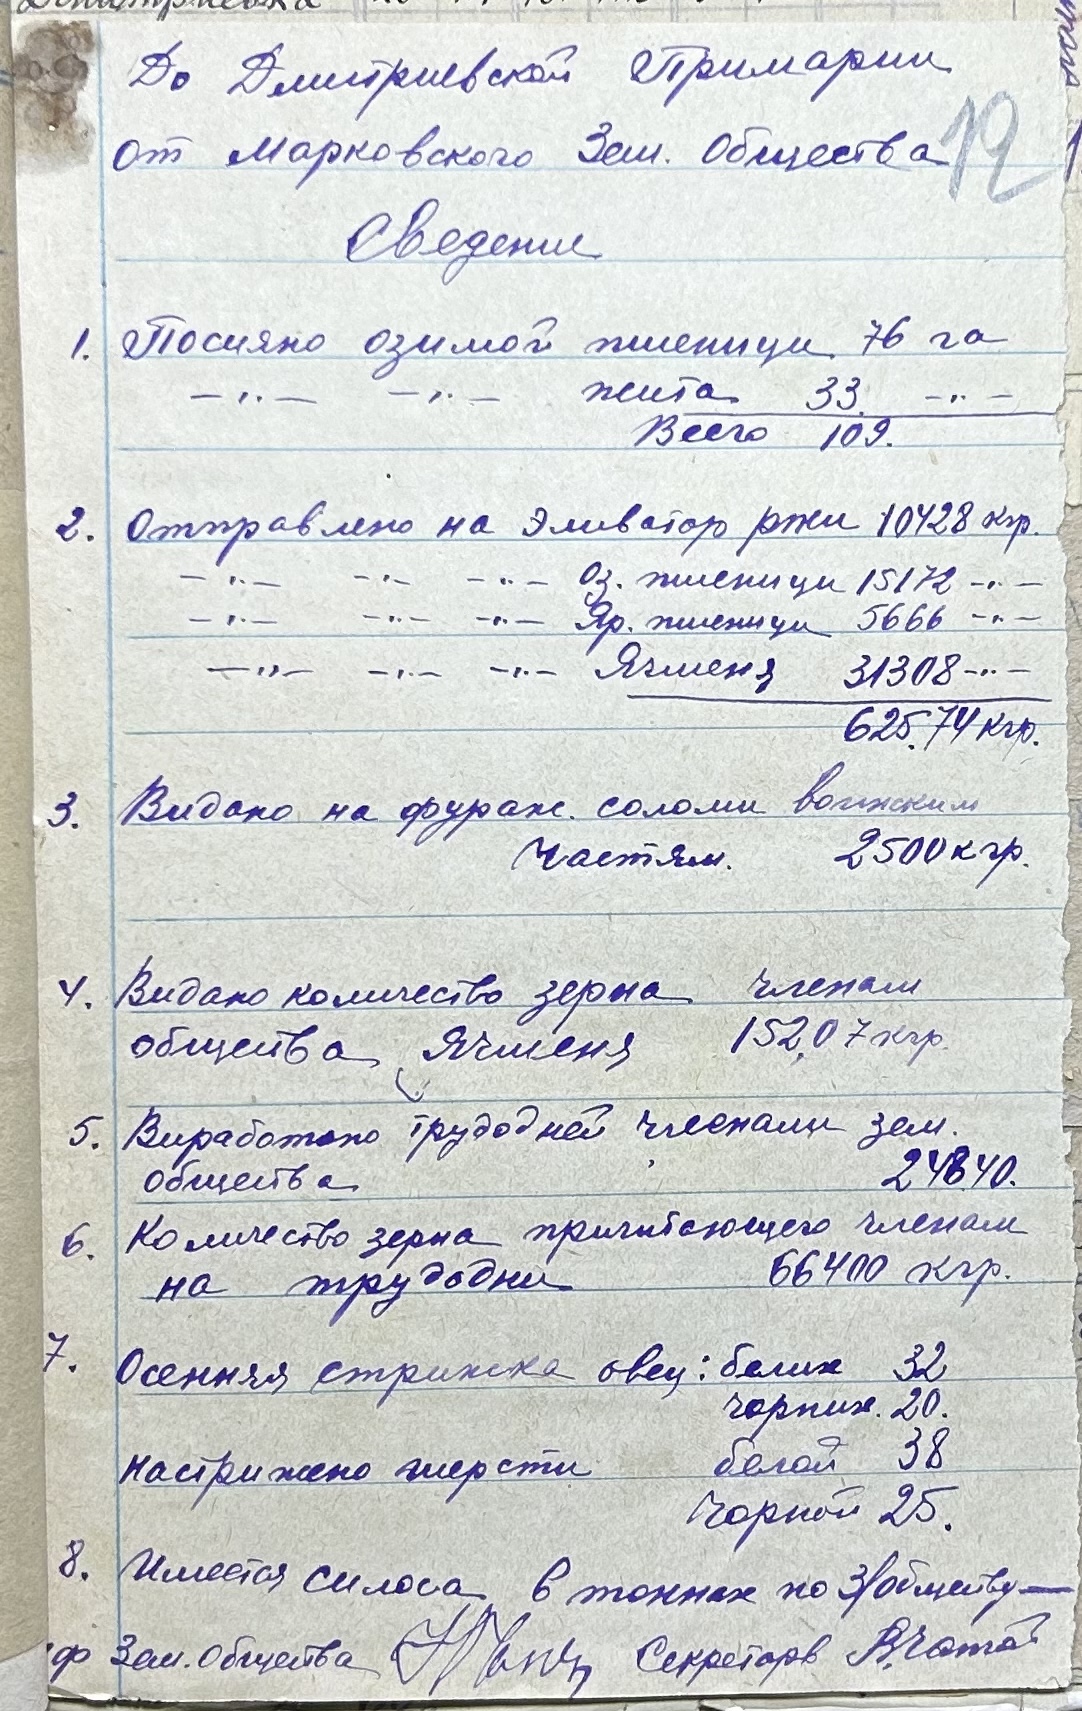 До Дмитриевской Примарии
12
от Марковского Зем. Общества
Сведение
1. Посияно озимой пшеници 76 га
—"— —"— жита 33. —"—
Всего 109.
2. Отправлено на Эливатор ржи 10428 кгр.
—"— —"— —"— Оз. пшеници 15172 —"—
—"— —"— —"— Яр. пшеници 5666 —"—
—"— —"— —"— Ячменя 31308 —"—
625.74 кгр.
3. Видано на фураж. соломи воинским
Частям. 2500 кгр.
4. Видано количество зерна членам
общества Ячменя 152,07 кгр.
5. Виработано трудодней членами зем.
общества 24840.
6. Количество зерна причитающего членам
на трудодни 66400 кгр.
7. Осенняя стрижка овец: белих 32
чорних. 20.
настрижено шерсти белой 38
Чорной 25.
8. Имеется силоса в тоннах по З/обществу —
Зем. Общества Секретарь